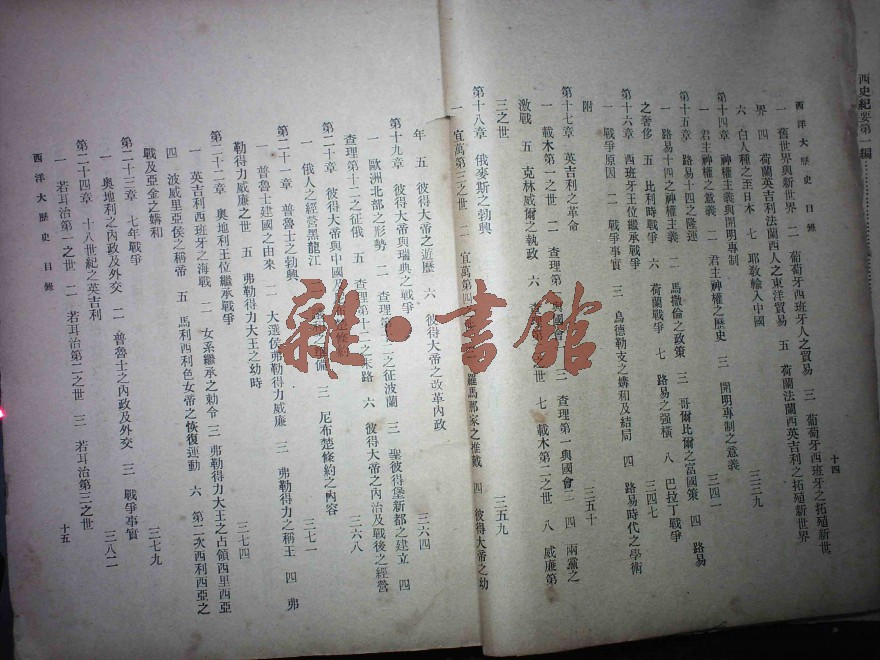 西史紀要第一編
西洋大歷史 目錄 十四
一 舊世界與新世界 二 葡萄牙西班牙人之貿易 三 葡萄牙西班牙之拓殖新世
界 四 荷蘭英吉利法蘭西人之東洋貿易 五 荷蘭法蘭西英吉利之拓殖新世界
六 白人種之至日本 七 耶敎輸入中國 三三九
第十四章 君主神權主義與開明專制
一 君主神權之意義 二 君主神權之歷史 三 開明專制之意義 三四一
第十五章 路易十四之隆運
一 路易十四之神權主義 二 馬撒倫之政策 三 哥爾比爾之富國策 四 路易
之奢侈 五 比利時戰爭 六 荷蘭戰爭 七 路易之强橫 八 巴拉丁戰爭 三四七
第十六章 西班牙王位繼承戰爭
一 戰爭原因 二 戰爭事實 三 烏德勒支之媾和及結局 四 路易時代之學術
附 三五十
第十七章 英吉利之革命
一 載木第一之世 二 查理第一與國會 三 查理第一與國會 四 兩黨之
激戰 五 克林威爾之執政 六 之世 七 載木第二之世 八 威廉第
三之世 三五九
第十八章 俄麥斯之勃興
一 宜萬第三之世 二 宜萬第四 羅馬那家之推戴 四 彼得大帝之幼
年 五 彼得大帝之遊歷 六 彼得大帝之改革內政 三六四
第十九章 彼得大帝與瑞典之戰爭
一 歐洲北部之形勢 二 查理第十二之征波蘭 三 聖彼得堡新都之建立 四
查理第十二之征俄 五 查理第十二之末路 六 彼得大帝之內治及戰後之經營 三六八
第二十章 彼得大帝與中國 條約
一 俄人之經營黑龍江 三 尼布楚條約之內容 三七一
第二十一章 普魯士之勃興
一 普魯士建國之由來 二 大選侯弗勒得力威廉 三 弗勒得力之稱王 四 弗
勒得力威廉之世 五 弗勒得力大王之幼時 三七四
第二十二章 奧地利王位繼承戰爭
一 英吉利西班牙之海戰 二 女系繼承之勅令 三 弗勒得力大王之占領西里西亞
四 波威里亞侯之稱帝 五 馬利西利色女帝之恢復運動 六 第二次西利西亞之
戰及亞金之媾和 三七九
第二十三章 七年戰爭
一 奧地利之內政及外交 二 普魯士之內政及外交 三 戰爭事實 三八二
第二十四章 十八世紀之英吉利
一 若耳治第一之世 二 若耳治第二之世 三 若耳治第三之世
西洋大歷史 目錄 十五
雜·書館